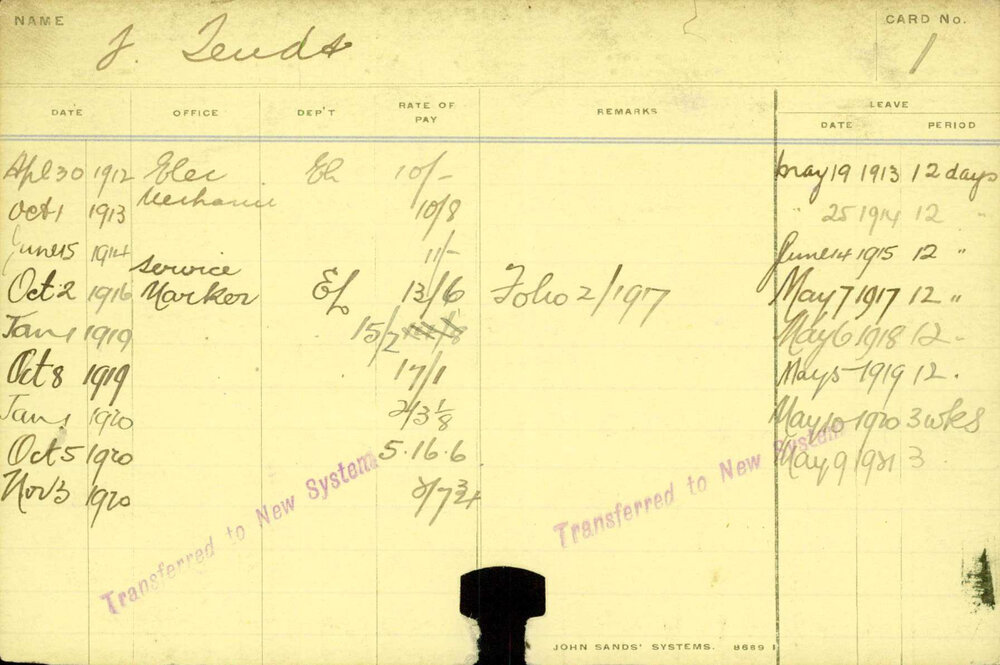 NAME CARD No.
J. Tendt 1
DATE OFFICE DEP'T RATE OF PAY REMARKS LEAVE
DATE PERIOD
Apl 30 1912 Elec El 10/- May 19 1913 12 days
Mechanic
Oct 1 1913 10/8 " 25 1914 12 "
June 15 1914 11/- June 14 1915 12 "
Service
Oct 2 1916 Marker El 13/6 Folio 2/1917 May 7 1917 12 "
Jan 1 1919 15/2 May 6 1918 12 "
Oct 8 1919 17/1 May 5 1919 12 "
Jan 1 1920 2/3 1/8 May 10 1920 3 wks
Oct 5 1920 5.16.6 May 9 1921 3
Nov 3 1920 2/7 3/4
Transferred to New System
Transferred to New System
JOHN SANDS' SYSTEMS. 8689